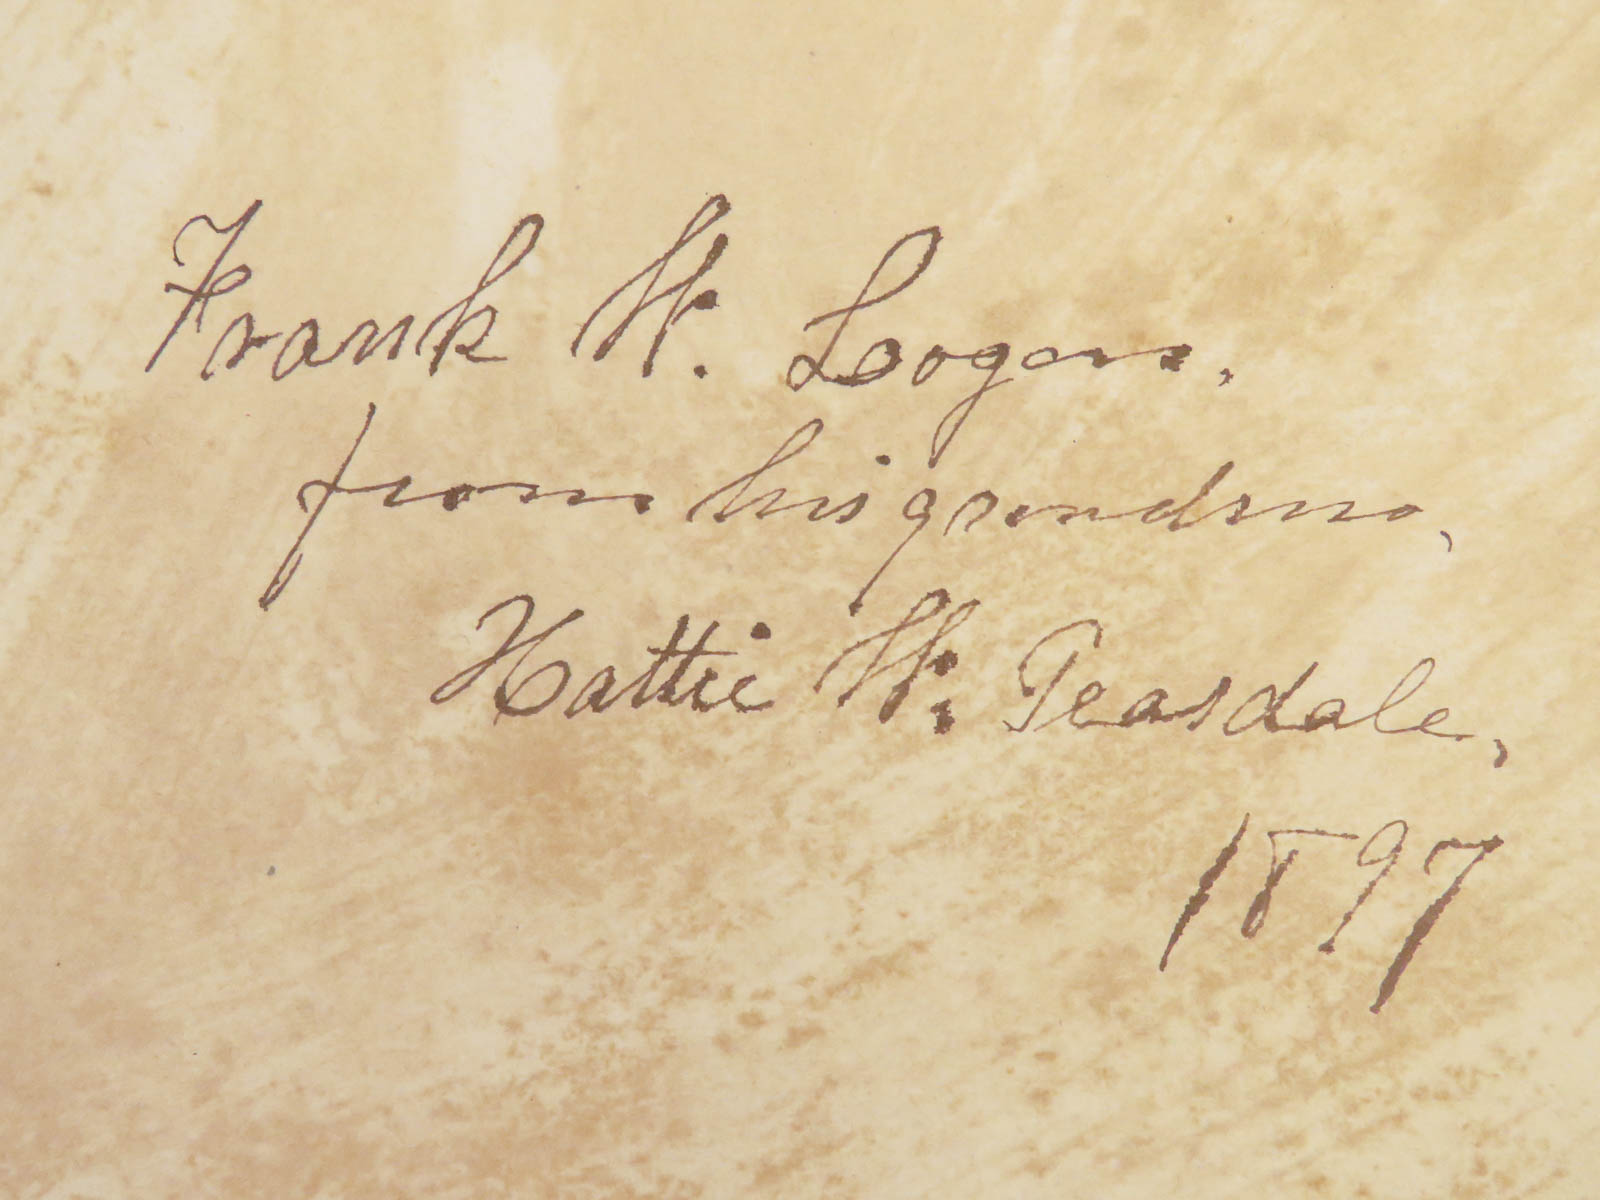 Frank W. Loogen,
from his grandma,
Hattie W. Teasdale,
1897